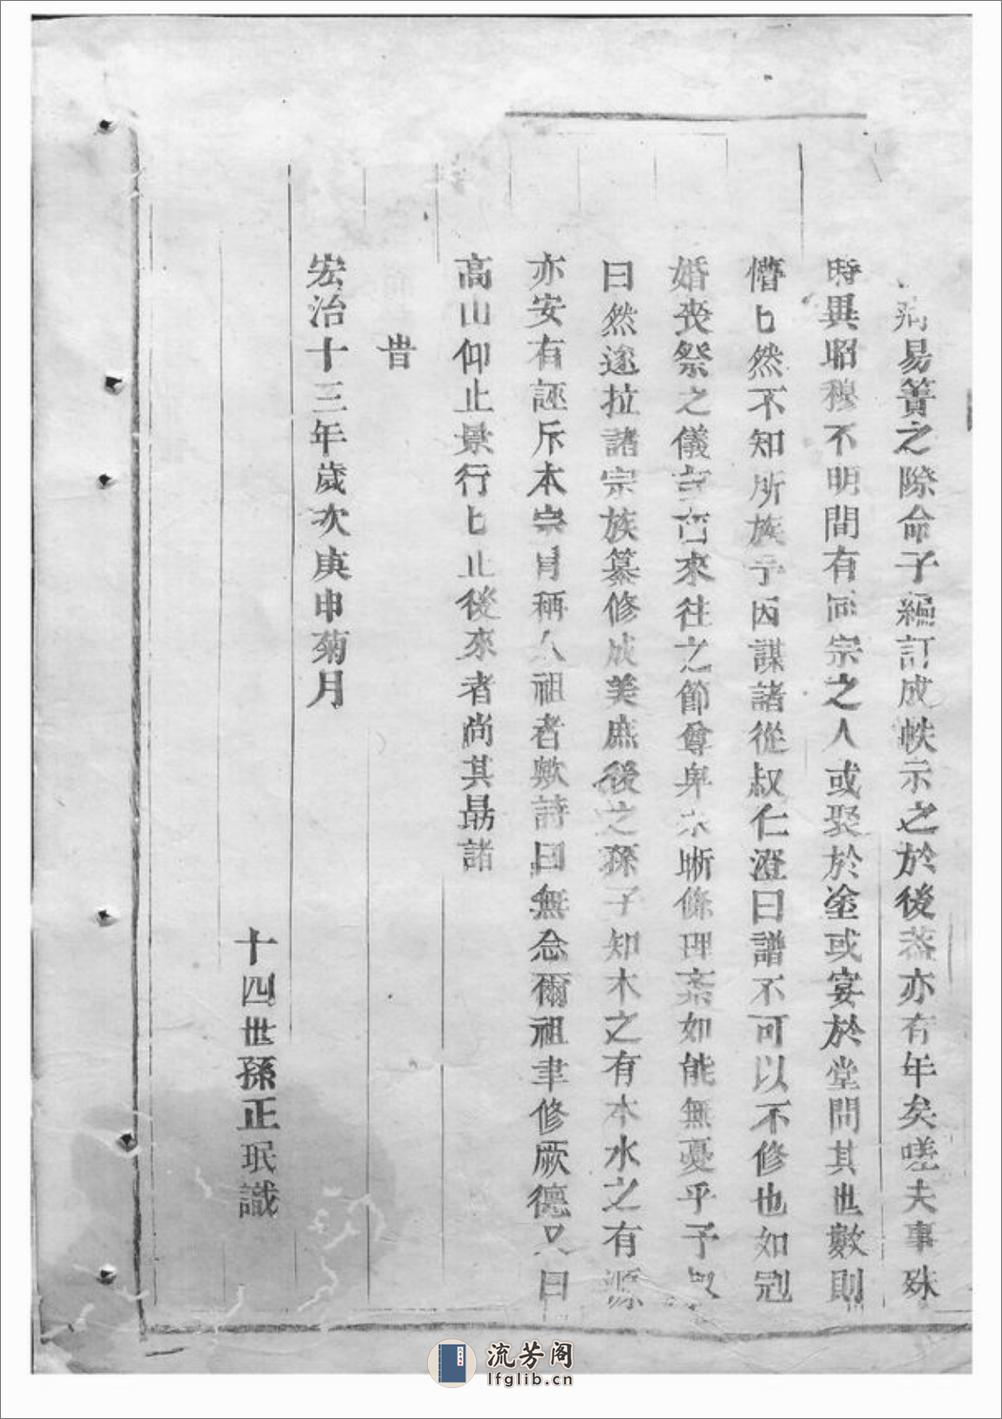 病易簀之際命子繩訂成帙示之於後葢亦有年矣嗟夫事殊
時異昭穆不明間有同宗之人或聚於塗或宴於堂問其世數則
懵匕然不知所族予因謀諸從叔仁澄曰譜不可以不修也如冠
婚丧祭之儀吉凶來往之節尊卑不晰條理紊如能無憂乎予叔
曰然遂拉諸宗族纂修成美庶後之孫子知木之有本水之有源
亦安有誣斥本宗冐稱人祖者歟詩曰無念爾祖聿修厥德又曰
高山仰止景行匕止後來者尚其勗諸
旹
宏治十三年歲次庚申菊月
十四世孫正珉識
流芳阁
lfglib.cn